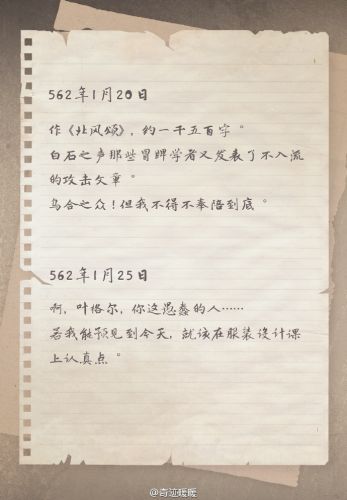 562年1月20日
作《北风颂》，约一千五百字。
白石之声那些冒牌学者又发表了不入流
的攻击文章。
乌合之众！但我不得不奉陪到底。
562年1月25日
啊，叶格尔，你这愚蠢的人……
若我能预见到今天，就该在服装设计课
上认真点。
@奇迹暖暖